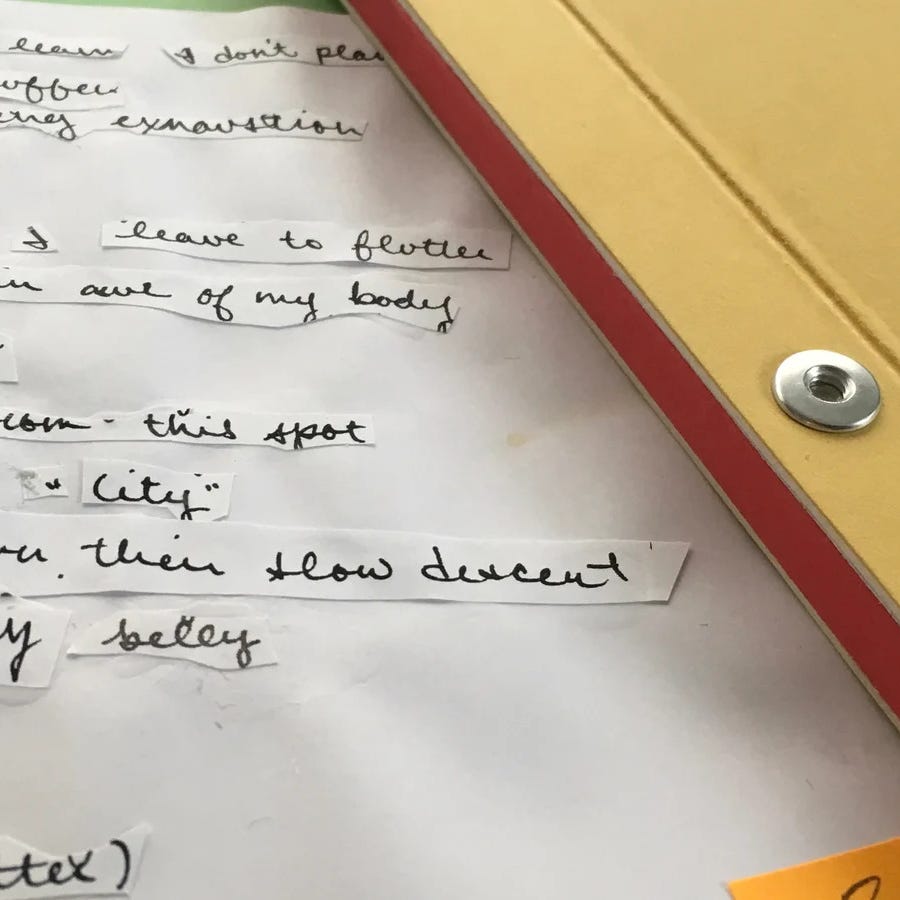 learn I don't plan
exhaustion
I leave to flutter
in awe of my body
this spot
City"
then slow descent
belly